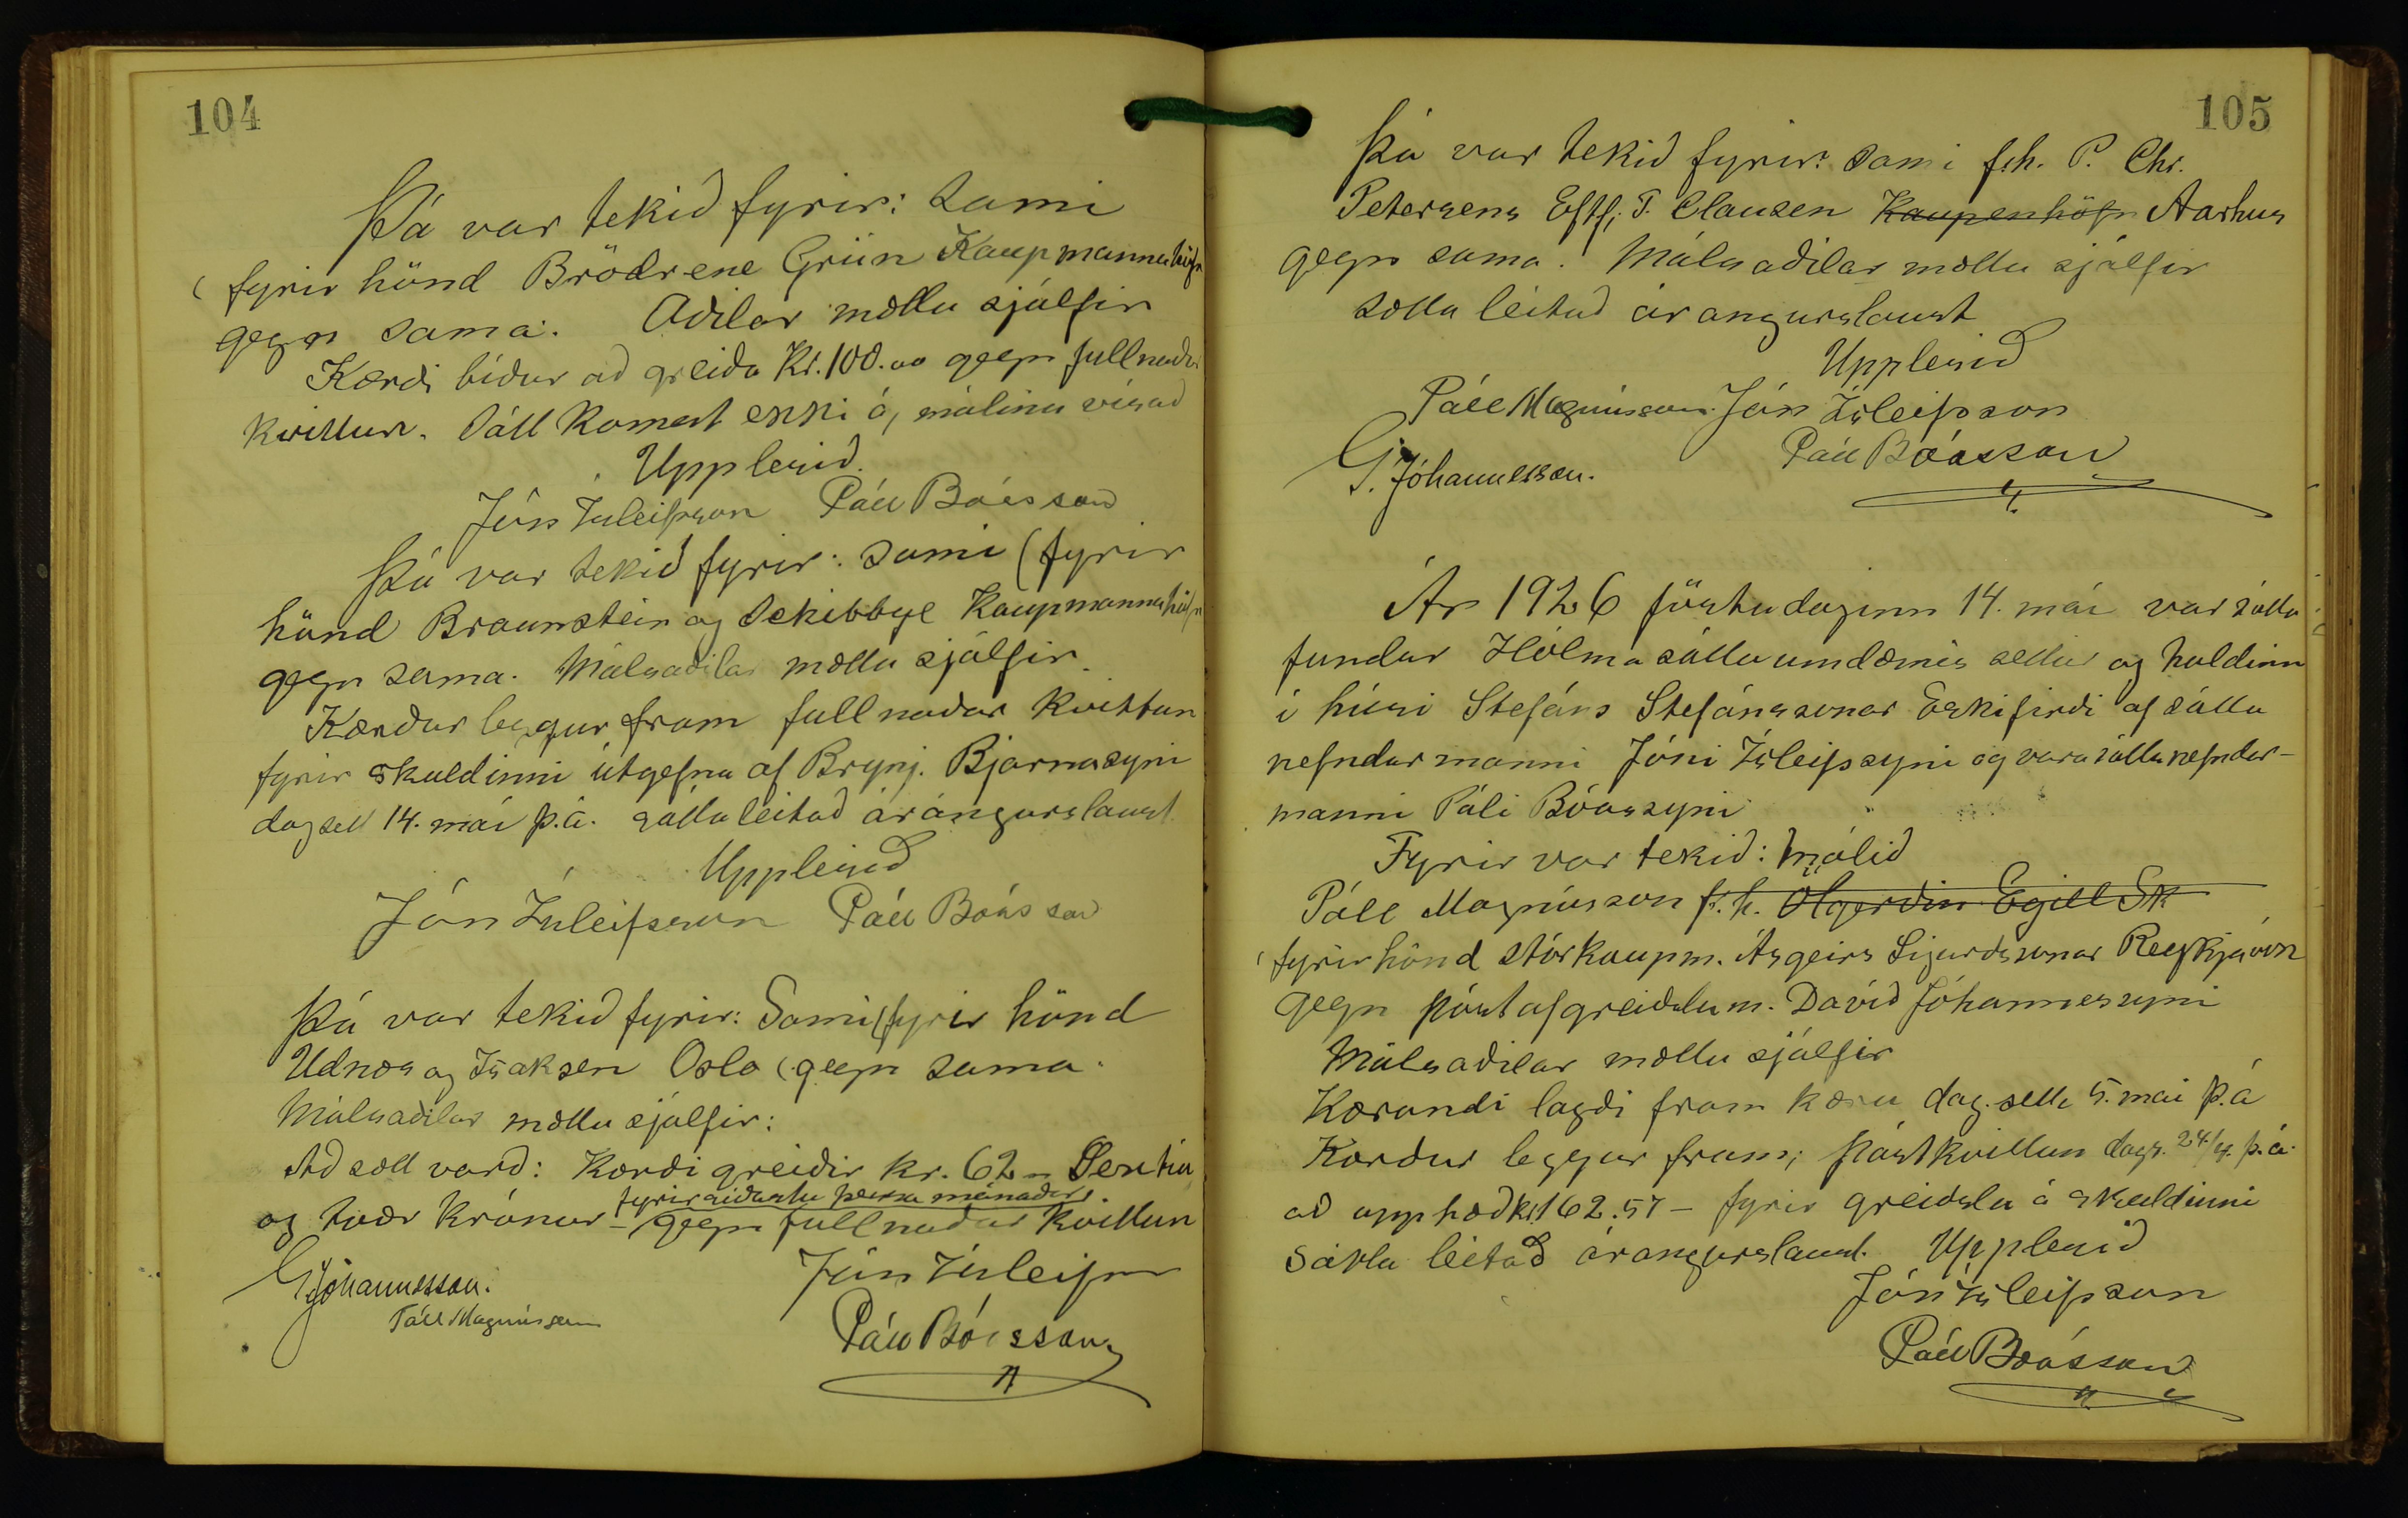 104
Þá var tekið fyrir: Sami
(fyrir hönd Brödrene Grün Kaupmannahöfn
gegn sama. Aðilar mættu sjálfir
Kærði bíður að greiða Kr. 100.00 gegn fullnaðar
kvittun. Sátt komst ekki á, málinu vísað
Upplesið.
Jón Ísleifsson Páll Bóasson
Þá var tekið fyrir: sami (fyrir
hönd Braunstein og Sckibbye Kaupmannahöfn
gegn sama. Málsaðilar mættu sjálfir.
Kærður leggur fram fullnaðar kvittun
fyrir skuldinni útgefna af Brynj. Bjarnasyni
dagsett 14. maí þ.á. sátta leitað árangurslaust
Upplesið
Jón Ísleifsson Páll Bóasson
Þá var tekið fyrir: Sami (fyrir hönd
Udnæs og Isaksen Oslo (gegn sama.
Málsaðilar mættu sjálfir:
Að sætt varð: Kærði greiðir kr. 62 - Sextíu
fyrir síðustu þessa mánaðar
og tvær krónur - gegn fullnaðar kvittun
GJóhannesson. Jón Ísleifsson
Páll Magnússon
Páll Bóasson
105
Þá var tekið fyrir: Sami f.h. P. Chr.
Petersens Eftf; T. Clausen Kaupenhöfn Aarhus
gegn sama. Málsaðilar mættu sjálfir
sætta leitað árangurslaust
Upplesið
Páll Magnússon. Jón Ísleifsson
G. Jóhannesson. Páll Bóasson
Ár 1926 föstudaginn 14. maí var sátta
fundur Hólma sáttaumdæmis settur og haldinn
í húsi Stefáns Stefánssonar Eskifirði af sátta
nefndarmanni Jóni Ísleifssyni og varasáttanefndar-
manni Páli Bóassyni
Fyrir var tekið: Málið
Páll Magnússon f.h. Ölgerðin Egill Sk
(fyrir hönd stórkaupm. Ásgeirs Sigurðssonar Reykjavík
gegn póstafgreiðslum. Davíð Jóhannessyni
Málsaðilar mættu sjálfir
Kærandi lagði fram kæru dag.setta 5. maí þ.á
Kærður leggur fram; póstkvittun dags. 24/4. þ.á.
að upphæð kr 162.57 - fyrir greiðslu á skuldinni
Sátta leitað árangurslaust. Upplesið
Jón Ísleifsson
Páll Bóasson